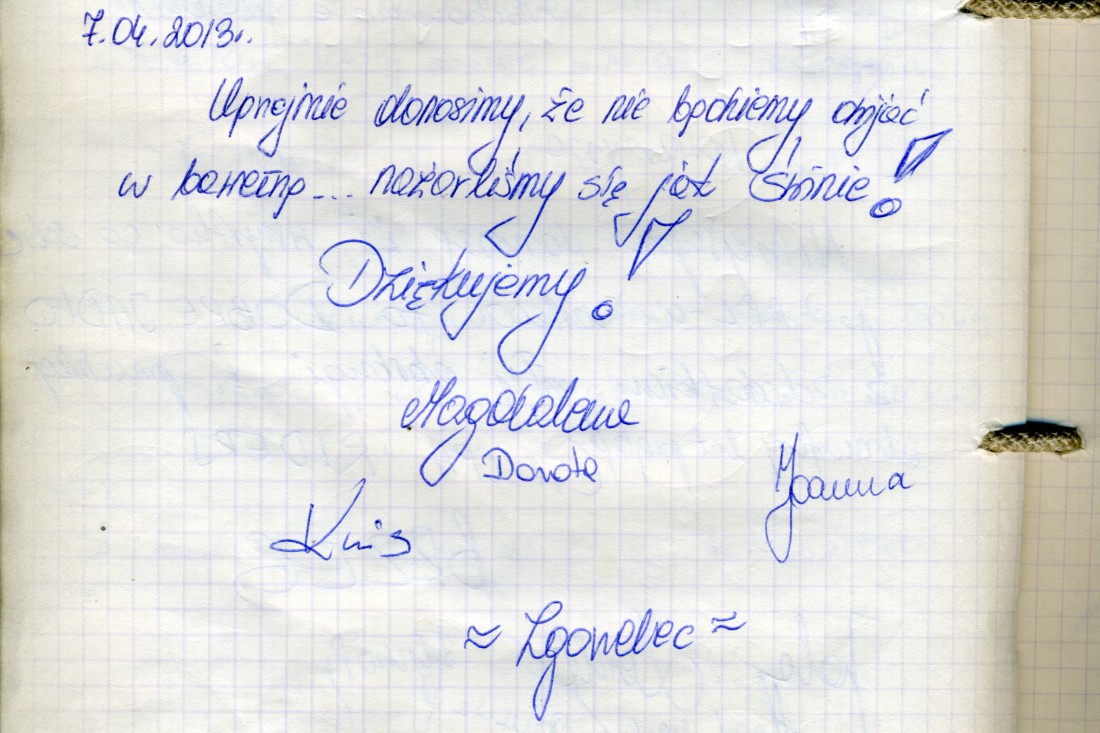 7.04.2013r.
Uprzejmie donosimy, że nie będziemy owijać
w bawełnę... nażarłyśmy się jak świnie!
Dziękujemy!
Magdalena
Dorota
Joanna
Kris
≈ Zgorzelec ≈